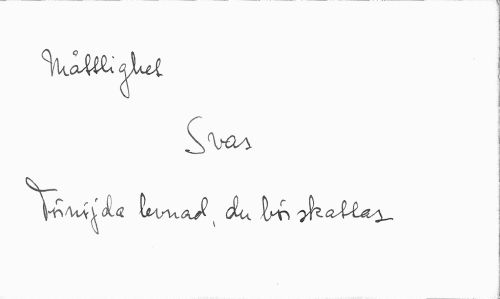 Måttlighet
Svar
Förnöjda levnad, du bör skattas